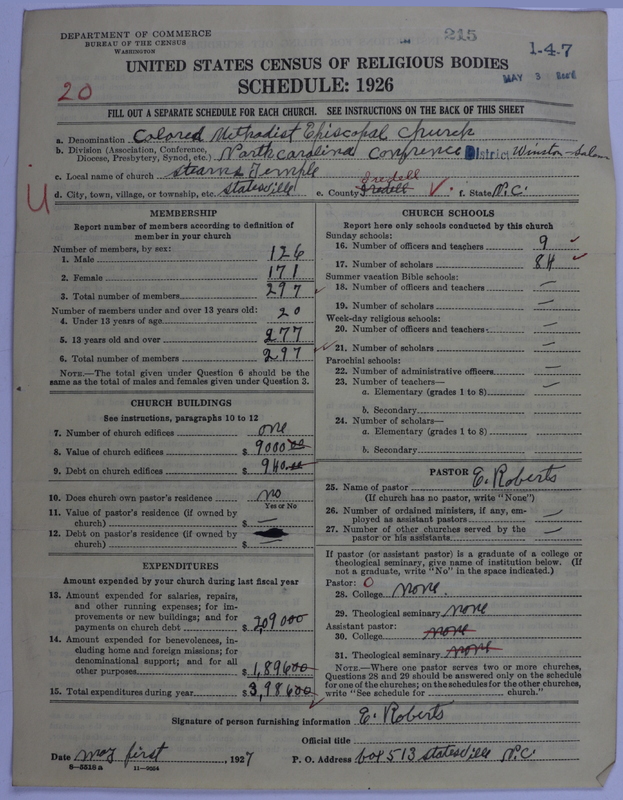 DEPARTMENT OF COMMERCE
BUREAU OF THE CENSUS
WASHINGTON
215
1-4-7
MAY 3
UNITED STATES CENSUS OF RELIGIOUS BODIES
SCHEDULE: 1926
20
FILL OUT A SEPARATE SCHEDULE FOR EACH CHURCH. SEE INSTRUCTIONS ON THE BACK OF THIS SHEET
a. Denomination Colored Methodist Episcopal Church
b. Division (Association, Conference, Diocese, Presbytery, Synod, etc.) North Carolina Confrence District Winston-Salem
c. Local name of church Stearns Temple
d. City, town, village, or township, etc. Statesville e. County Iredell Iredell f. State N.C.
MEMBERSHIP
Report number of members according to definition of
member in your church
Number of members, by sex:
1. Male 126
2. Female 171
3. Total number of members 297
Number of members under and over 13 years old:
4. Under 13 years of age 20
5. 13 years old and over 277
6. Total number of members 297
NOTE.—The total given under Question 6 should be the
same as the total of males and females given under Question 3.
CHURCH BUILDINGS
See instructions, paragraphs 10 to 12
7. Number of church edifices one
8. Value of church edifices $ 9000 00
9. Debt on church edifices $ 940.00
10. Does church own pastor's residence no
Yes or No
11. Value of pastor's residence (if owned by
church) $ —
12. Debt on pastor's residence (if owned by
church) $ —
EXPENDITURES
Amount expended by your church during last fiscal year
13. Amount expended for salaries, repairs,
and other running expenses; for im-
provements or new buildings; and for
payments on church debt $ 2,09000
14. Amount expended for benevolences, in-
cluding home and foreign missions; for
denominational support; and for all
other purposes $ 1,89600
15. Total expenditures during year $ 3,98600
CHURCH SCHOOLS
Report here only schools conducted by this church
Sunday schools:
16. Number of officers and teachers 9
17. Number of scholars 84
Summer vacation Bible schools:
18. Number of officers and teachers —
19. Number of scholars —
Week-day religious schools:
20. Number of officers and teachers —
21. Number of scholars —
Parochial schools:
22. Number of administrative officers —
23. Number of teachers—
a. Elementary (grades 1 to 8) —
b. Secondary
24. Number of scholars—
a. Elementary (grades 1 to 8) —
b. Secondary
PASTOR
25. Name of pastor E. Roberts
(If church has no pastor, write "None")
26. Number of ordained ministers, if any, em-
ployed as assistant pastors —
27. Number of other churches served by the
pastor or his assistants —
If pastor (or assistant pastor) is a graduate of a college or
theological seminary, give name of institution below. (If
not a graduate, write "No" in the space indicated.)
Pastor: 0
28. College none.
29. Theological seminary none
Assistant pastor:
30. College none
31. Theological seminary none
NOTE.—Where one pastor serves two or more churches,
Questions 28 and 29 should be answered only on the schedule
for one of the churches; on the schedules for the other churches,
write "See schedule for church."
Signature of person furnishing information E. Roberts
Official title
Date may first, 1927 P. O. Address box 513 Statesville N.C.
8-5518 a 11-9554